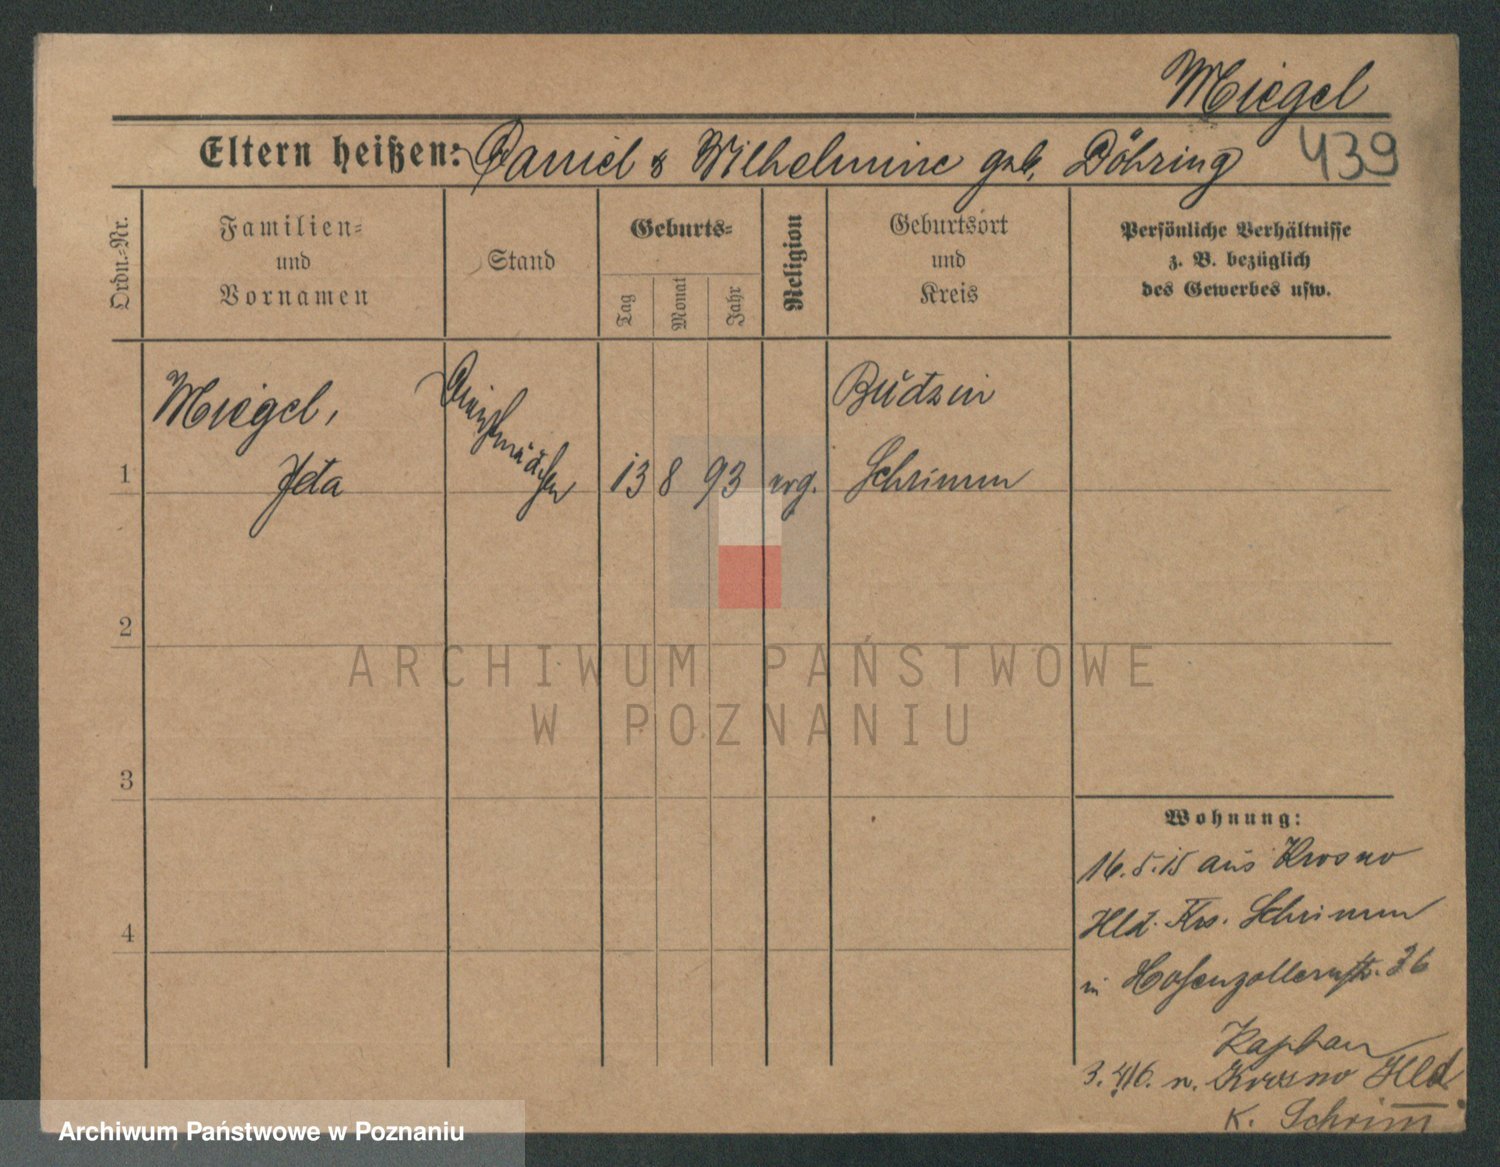 Miegel
439
Eltern heißen: Daniel & Wilhelmine geb. Döhring
Ordn.-Nr.
Familien-
und
Vornamen
Stand
Geburts-
Tag
Monat
Jahr
Religion
Geburtsort
und
Kreis
Persönliche Verhältnisse
z. B. bezüglich
des Gewerbes usw.
1
Miegel,
Jeta
Dienstmädchen
13 8 93 evg.
Budzin
Schrimm
2
3
4
Wohnung:
16.5.15 aus Krosno
Hld. Krs. Schrimm
in Hohenzollernstr. 36
Kaplan
3.4.16. n. Krosno Hld
K. Schrim
ARCHIWUM PAŃSTWOWE
W POZNANIU
Archiwum Państwowe w Poznaniu